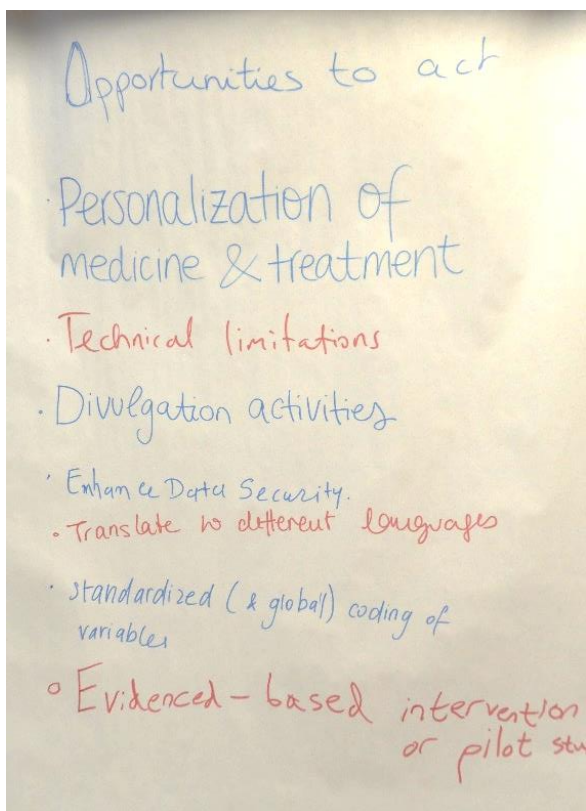 Opportunities to act
· Personalization of
medicine & treatment
· Technical limitations
· Divulgation activities
· Enhance Data Security.
· Translate to different languages
· Standardized (& global) coding of
variables
° Evidenced-based intervention
or pilot stu